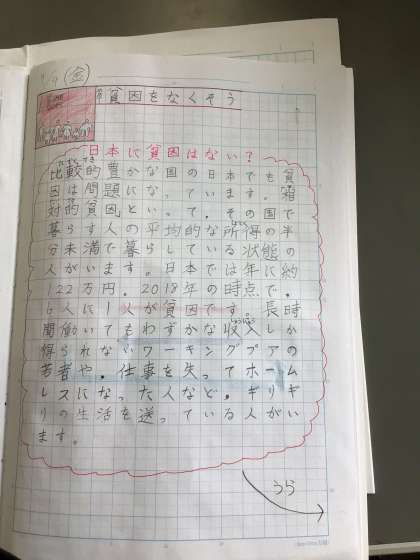 1/9 (金)
貧困をなくそう
日本に貧困はない?
比較的豊かな国の日本でも貧
困は問題になっています。相
対的貧困といって、その国で
暮らす人の平均的な所得の半
分未満で暮らしている状態の
人がいます。日本では年に約
122万円。2018年の時点で、
6人に1人が貧困です。長時
間働いてもわずかな収入しか
得られないワーキングプアの
若者や、仕事を失ってホーム
レスになった人など、ギリギ
リの生活を送っている人がい
ます。
うら